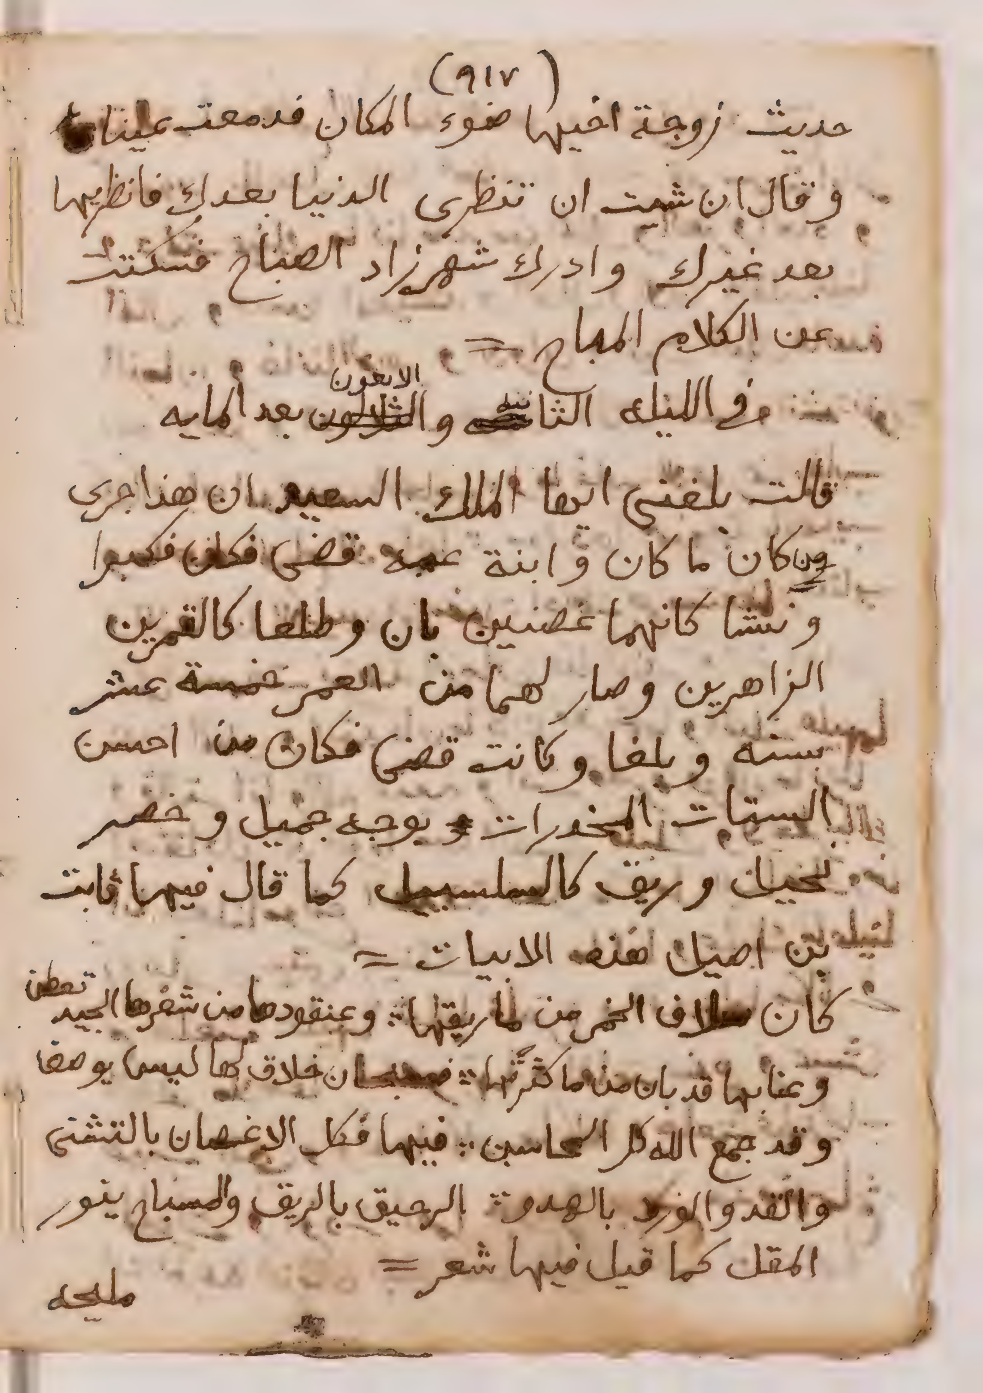 (٩١٧)
حديث زوجة اخيها ضوء المكان فدمعت عيناه
وقال ان شيت ان تنظرى الدنيا بعدك فانظريها
بعد غيرك وادرك شهرزاد الصباح فسكتت
عن الكلام المباح =
وفى الليله الثانيه والاربعون بعد المايه
قالت بلغنى ايها الملك السعيد ان هذا جرى
من كان ما كان وابنة عمه قضى فكان فكبرا
ونشا كانهما غصنين بان وطلعا كالقمرين
الزاهرين وصار لهما من العمر خمسة عشر
سنه وبلغا وكانت قضى فكان من احسن
الستات المخدرات بوجه جميل وخصر
نحيل وريق كالسلسبيل كما قال فيها ثابت
بن اصيل هذه الابيات =
كان سلاف الخمر من لما ريقها ؞ وعنقودها من شعرها الجيد تعطف
وعنابها قد بان من ما كثرتها ؞ خلاق لها ليس يوصفا
وقد جمع الله كل المحاسن ؞ فيها فكل الاغصان بالتثنى
والقد والورد ؞ الرحيق بالريق والمسباح ينور
المقل كما قيل فيها شعر =
مليحه